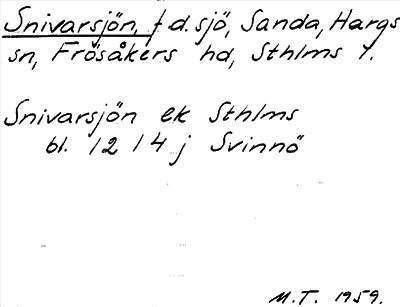 Snivarsjön, f d. sjö, Sanda, Hargs
sn, Frösåkers hd, Sthlms l.
Snivarsjön ek Sthlms
bl. 12 I 4 j Svinnö
M.T. 1959.